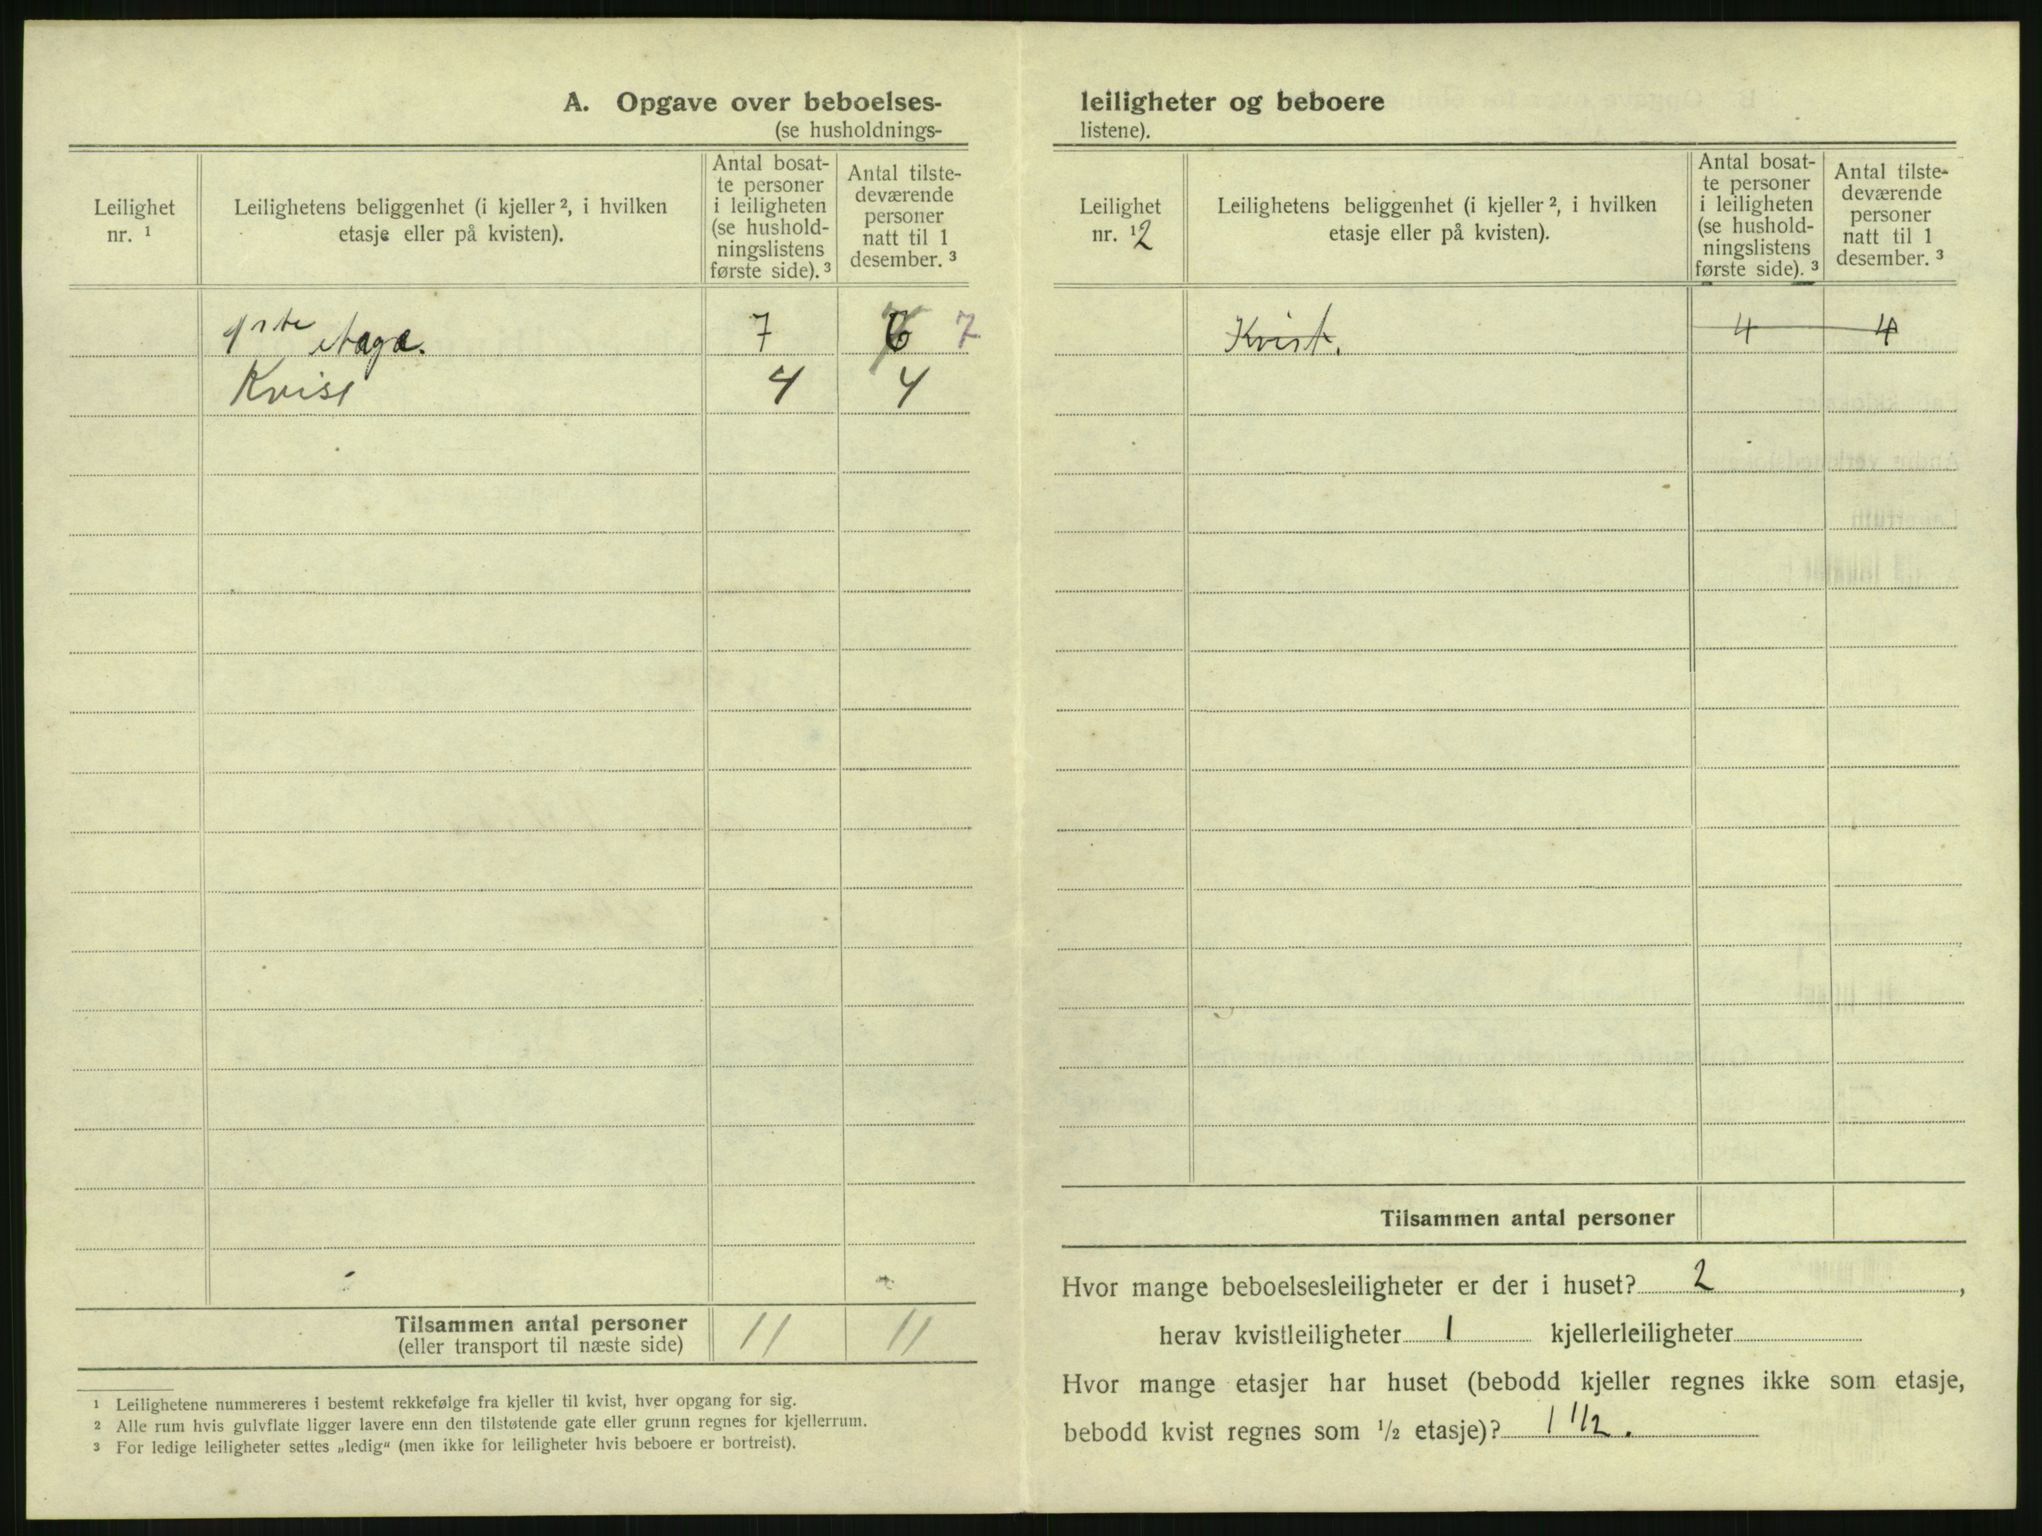 A. Opgave over beboelses-
(se husholdnings-
Leilighet
nr. ¹
Leilighetens beliggenhet (i kjeller ², i hvilken
etasje eller på kvisten).
Antal bosat-
te personer
i leiligheten
(se hushold-
ningslistens
første side). ³
Antal tilste-
deværende
personer
natt til 1
desember. ³
1ste etage. 7 6 7
Kvist 4 4
Tilsammen antal personer 11 11
(eller transport til næste side)
¹ Leilighetene nummereres i bestemt rekkefølge fra kjeller til kvist, hver opgang for sig.
² Alle rum hvis gulvflate ligger lavere enn den tilstøtende gate eller grunn regnes for kjellerrum.
³ For ledige leiligheter settes „ledig“ (men ikke for leiligheter hvis beboere er bortreist).
leiligheter og beboere
listene).
Leilighet
nr. ¹ 2
Leilighetens beliggenhet (i kjeller ², i hvilken
etasje eller på kvisten).
Antal bosat-
te personer
i leiligheten
(se hushold-
ningslistens
første side). ³
Antal tilste-
deværende
personer
natt til 1
desember. ³
Kvist. 4 4
Tilsammen antal personer
Hvor mange beboelsesleiligheter er der i huset? 2 ,
herav kvistleiligheter 1 kjellerleiligheter
Hvor mange etasjer har huset (bebodd kjeller regnes ikke som etasje,
bebodd kvist regnes som ½ etasje)? 1 1/2.